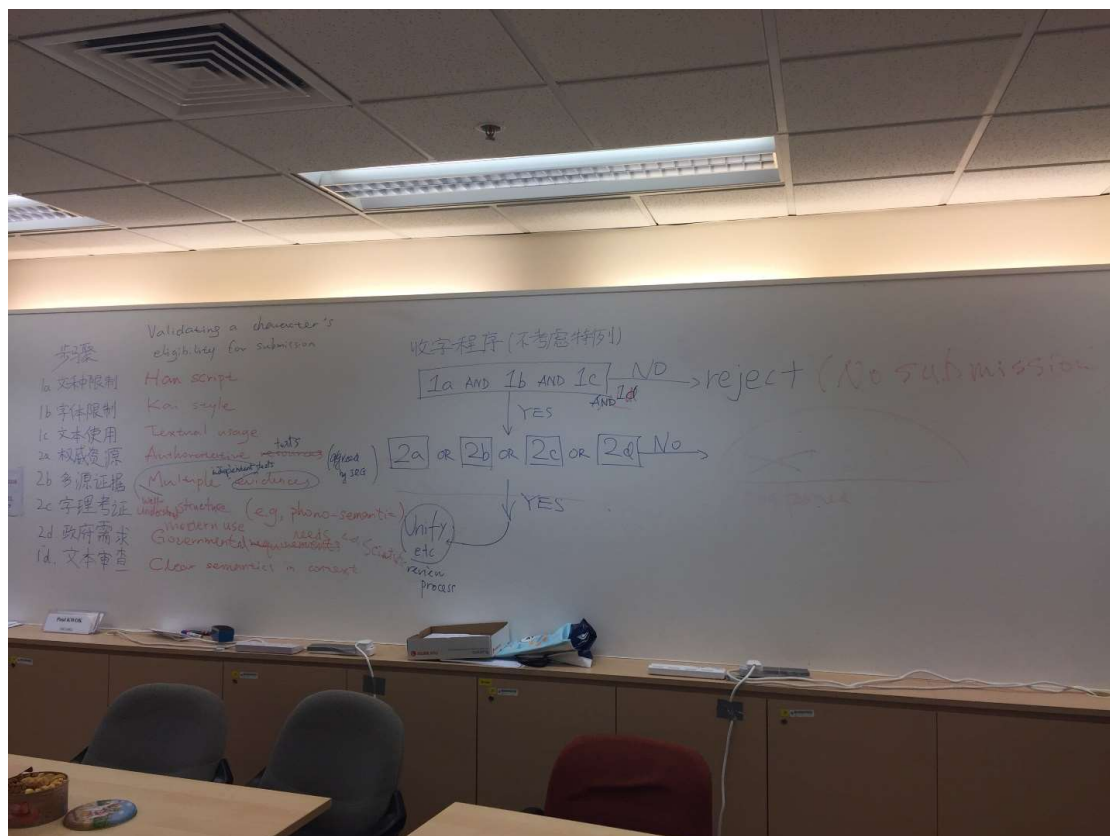 Validating a character's
eligibility for submisson
步骤
1a 文种限制 Han script
1b 字体限制 Kai style
1c 文本使用 Textual usage
2a 权威资源 Authoritative texts
2b 多源证据 Multiple independent evidences
2c 字理考证 structure (e.g, phono-semantic)
modern use
2d 政府需求 Governmental needs
1d. 文本审查 Clear semantics in context
收字程序(不考虑特列)
1a AND 1b AND 1c AND 1d NO reject (No submission
YES
2a OR 2b OR 2c OR 2d No
YES
Unify
etc
review
process
Paul KWOK